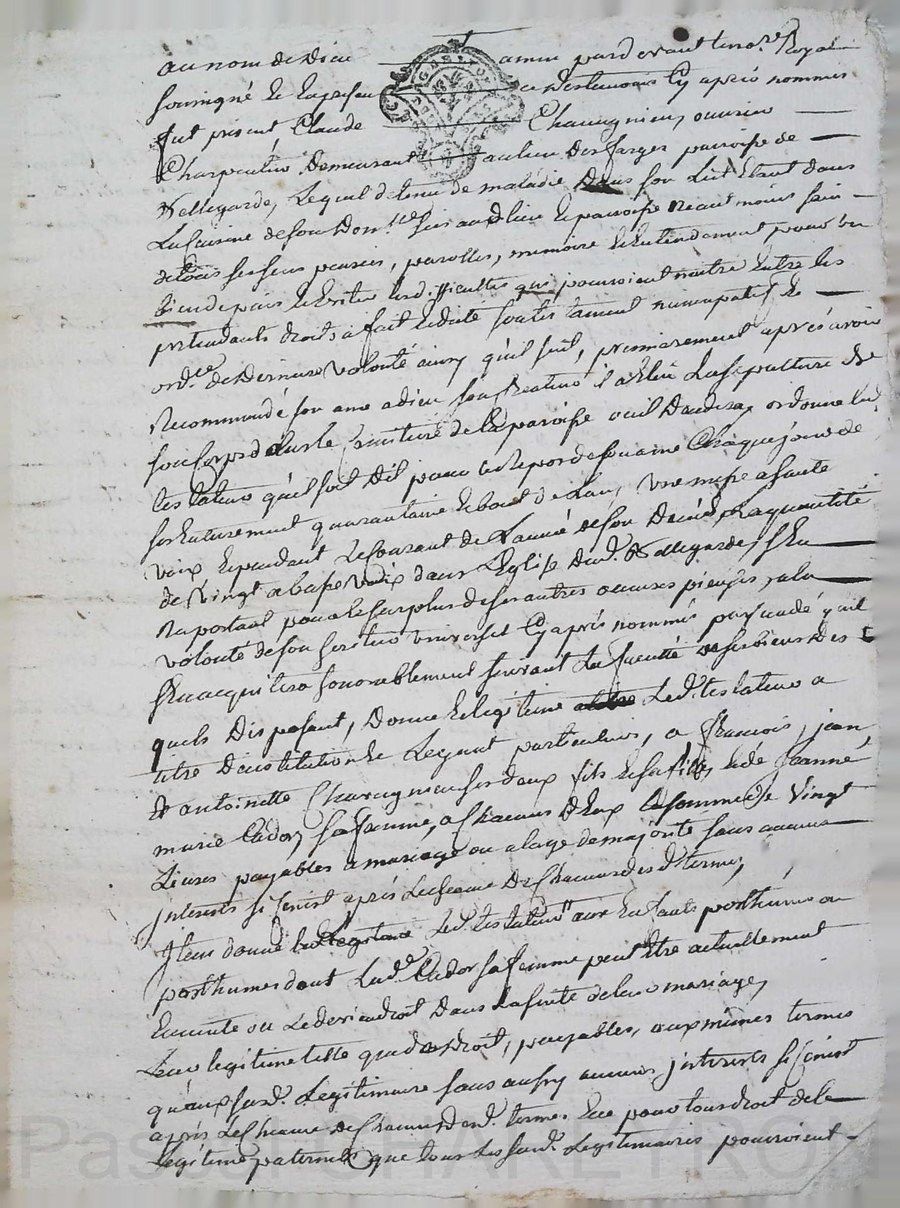 au nom de Dieu amen pardevant le no.re Royal
soussigné et en presence des temoins cy après nommés
fut présent Claude Charognieu, ouvrier
Charpentier demeurant au lieu des farges paroisse de
Nallegarde, Lequel detenu de maladie dans son Lit Etant dans
La Cuisine de son dom.lle sus aud. lieu et paroisse néant moins sain
de tous ses sens pensées, parolles, memoire et Entendement pour
et Eviter les difficultés qui pourroient naitre Entre les
prétendants droits a fait et dicté son testament nuncupatif et
ord.ce de derniere volonté ainsy qu'il suit, premierement après avoir
Recommandé son ame a dieu son Createur il a elu La sepulture de
son Corps dans le Cimitiere de la paroisse ou il Decedera, ordonne led.
testateur qu'il soit dit pour le repos de son ame Chaque jour de
son Enterrement quarantaine et bout de L'an, une messe a haute
voix et pendant Le Courant de L'année de son Decès, la quantité
de vingt a basse voix dans L'Eglise dud. Nallegarde, s'En
raportant pour Le surplus de ses autres oeuvres pieuses, a la
volonté de son heritier universel Cy après nommé persuadé qu'il
s'En acquittera honorablement suivant La faculté de ses biens des
quels disposant, donne et legitime Led. testateur a
titre d'institution et Legat particulier, a francois, jean
et antoinette Charognieu ses deux fils et sa fille, et de jeanne
marie Cador, sa femme, a Chacun d'Eux La somme de vingt
Livres payables a mariage ou a l'age de majorité sans aucuns
interests si Ce n'est après L'echeance de Chacun desd. termes,
Item donne et Legitime Led. testateur aux Enfants posthume ou
posthumes dont Lad. Cador sa femme peut Etre actuellement
Enceinte ou Le deviendroit dans La suite de leur mariage,
Leur legitime telle que de droit, payables, aux mêmes termes
qu'aux susd. Legitimaires sans aussy aucuns interests si Ce n'est
après L'echeance de Chacun desd. termes Et pour tous droit de
Legitime paternelle que tous Les susd. Legitimaires pourroient
Pascal CHAREYRON